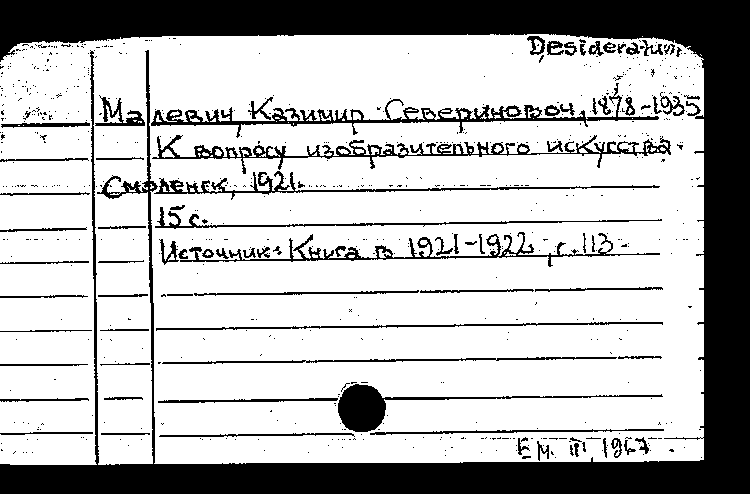 Desideratum
Малевич, Казимир Северинович, 1878-1935
К вопросу изобразительного искусства.
Смоленск, 1921.
15 с.
Источник: Книга в 1921-1922, с. 113
III, 1967